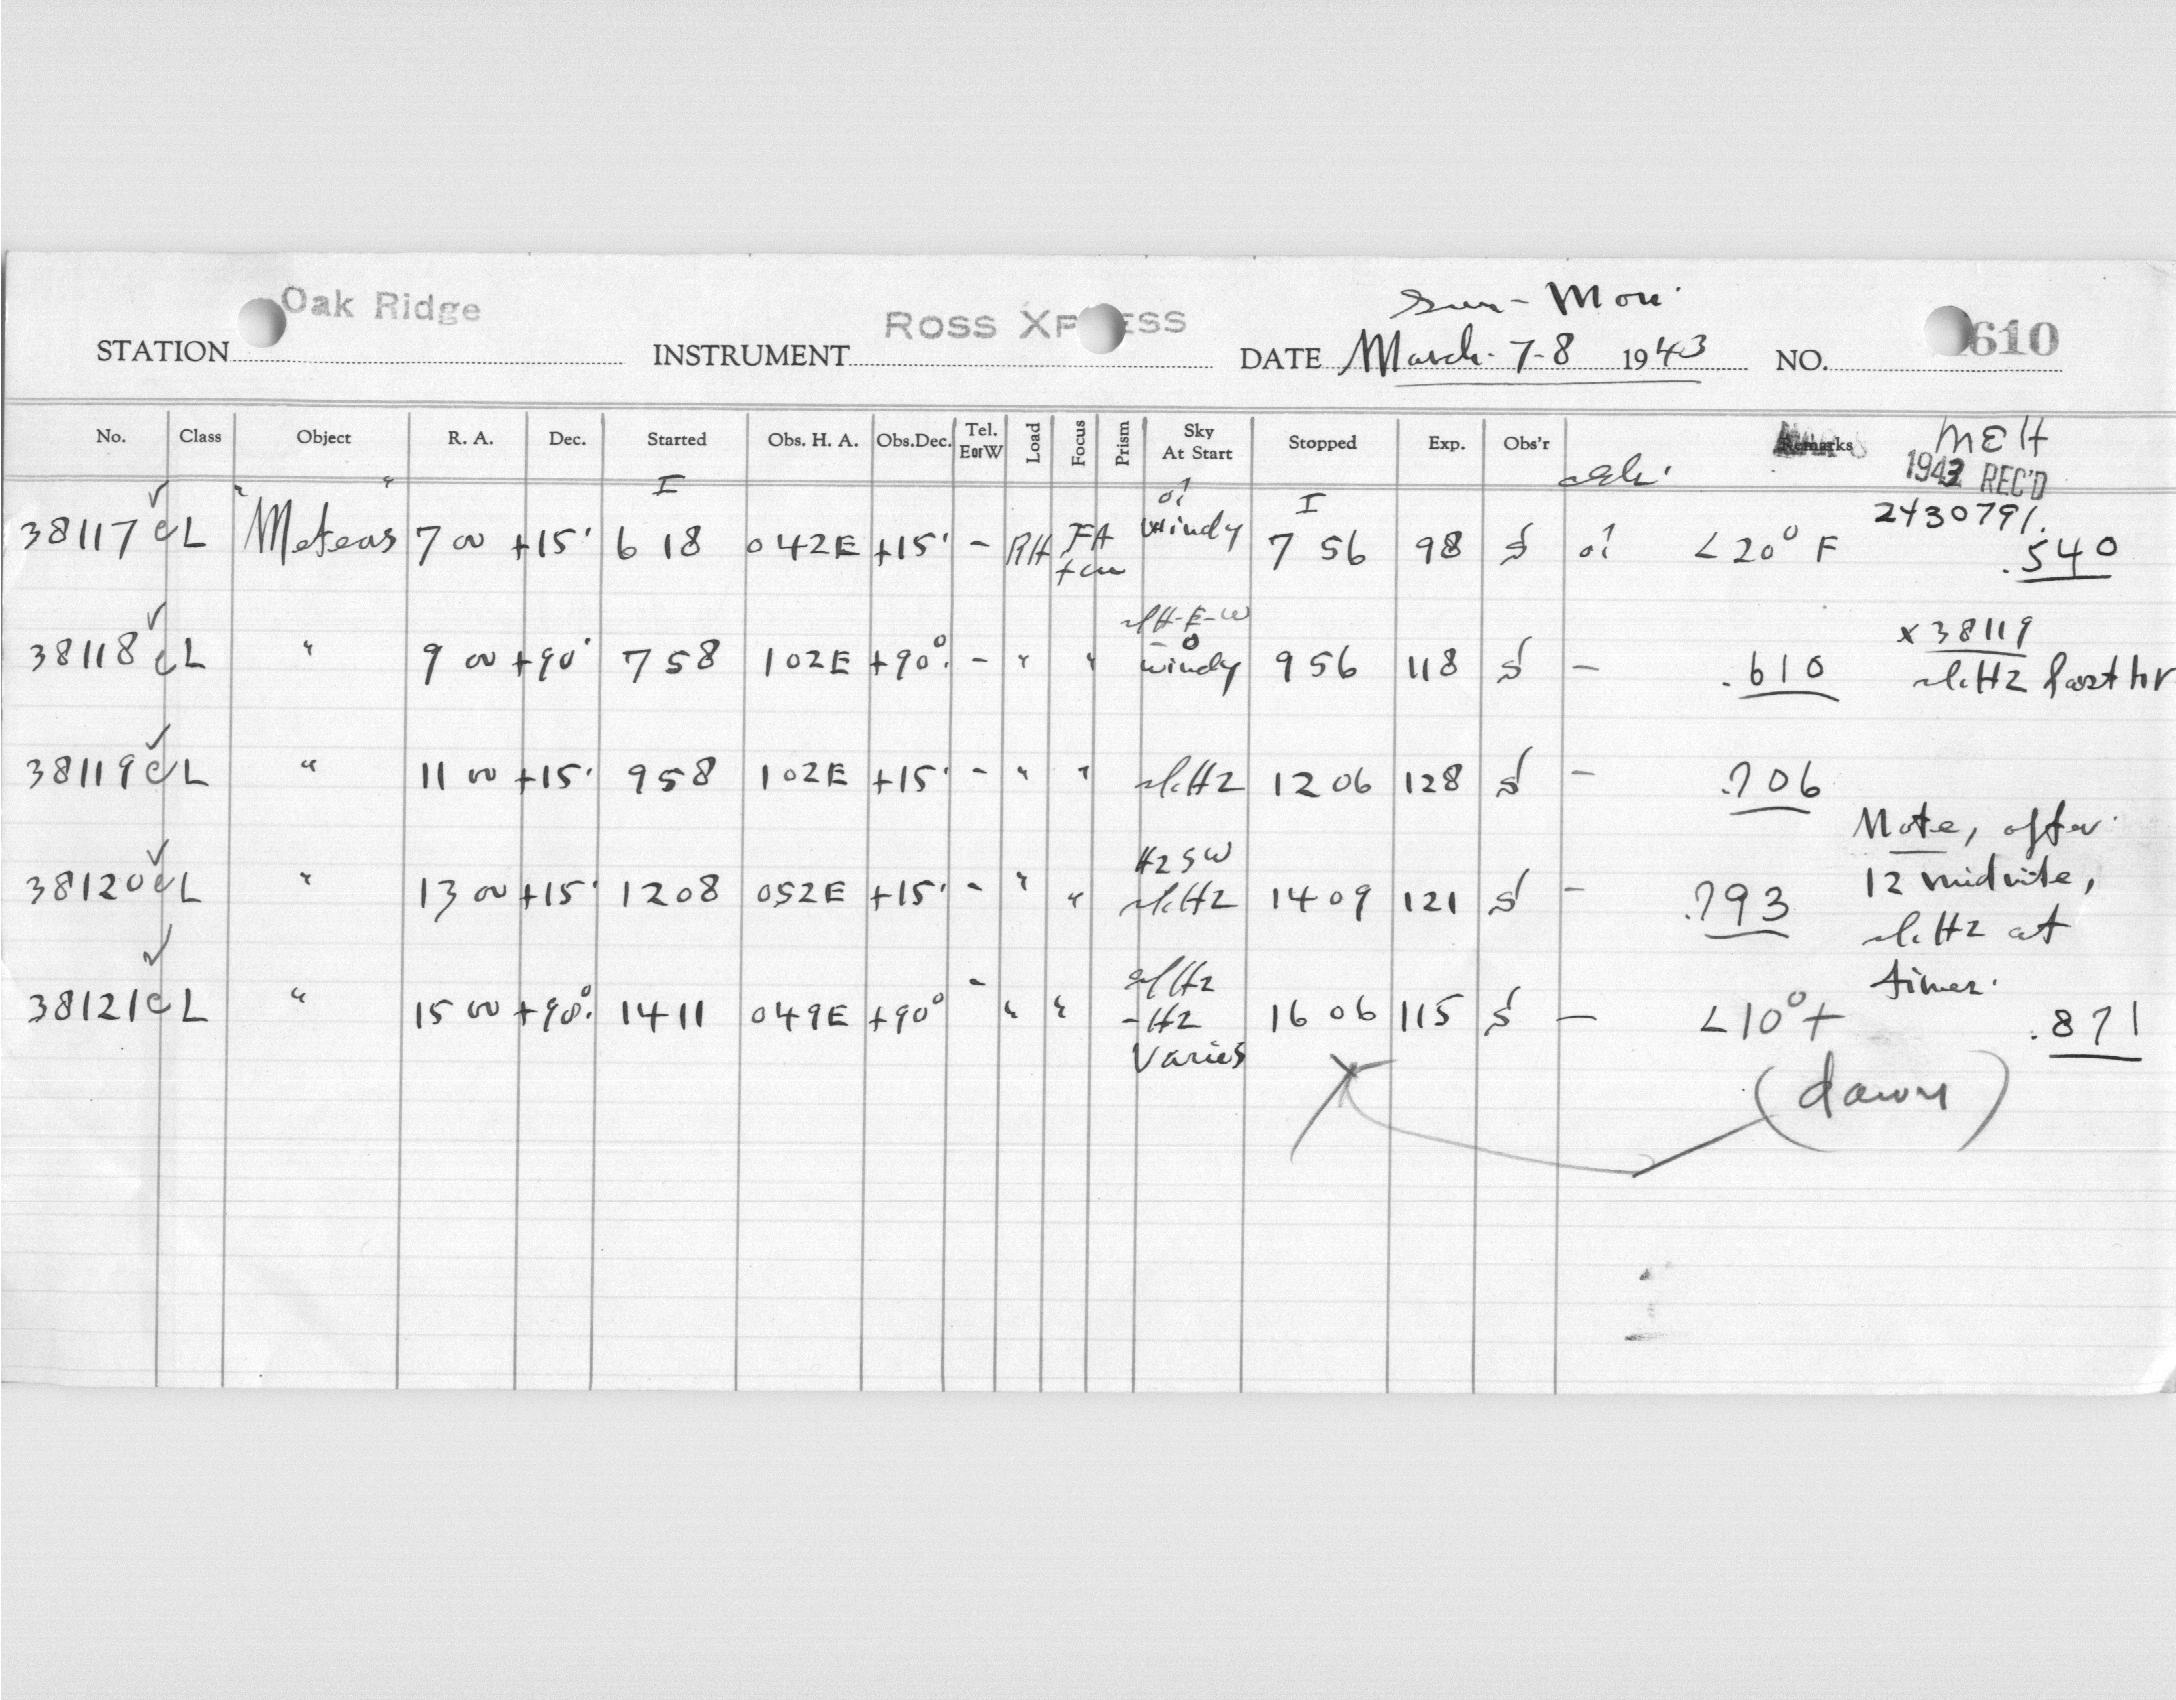 Oak Ridge
STATION
INSTRUMENT ROSS XP ESS
Sun - Mon.
DATE March 7-8 1943
NO. 610
No. Class Object R. A. Dec. Started Obs. H. A. Obs.Dec. Tel. E or W Load Focus Prism Sky At Start Stopped Exp. Obs'r Remarks
MEH
1943 REC'D
2430791.
38117 c L "Meteors" 7 00 +15° 6 18 042E +15° - RH FA windy 7 56 98 S <20° F .540
38118 c L " 9 00 +90° 7 58 102E +90° - " " slH-E-W - 0 windy 9 56 118 S - .610
x 38119
sl. Hz last hr
38119 c L " 11 00 +15° 9 58 102E +15° - " " sl. Hz 12 06 128 S - .706
38120 c L " 13 00 +15° 12 08 052E +15° - " " Hz SW sl. Hz 14 09 121 S - .793
Note, after
12 midnite,
sl. Hz at
times.
38121 c L " 15 00 +90° 14 11 049E +90° - " " sl Hz - Hz Varies 16 06 115 S - <10°+ .871
(dawn)